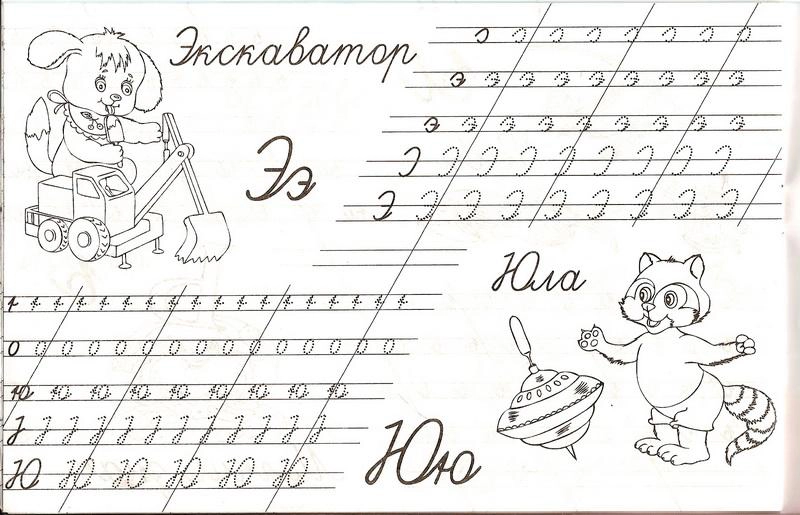 Экскаватор
э э э э э э э э э
э э э э э э э э э
Ээ
Э Э Э Э Э Э Э Э Э
Юла
о о о о о о о о о о о о о о о
ю ю ю ю ю ю ю ю ю
Ю Ю Ю Ю Ю Ю
Юю